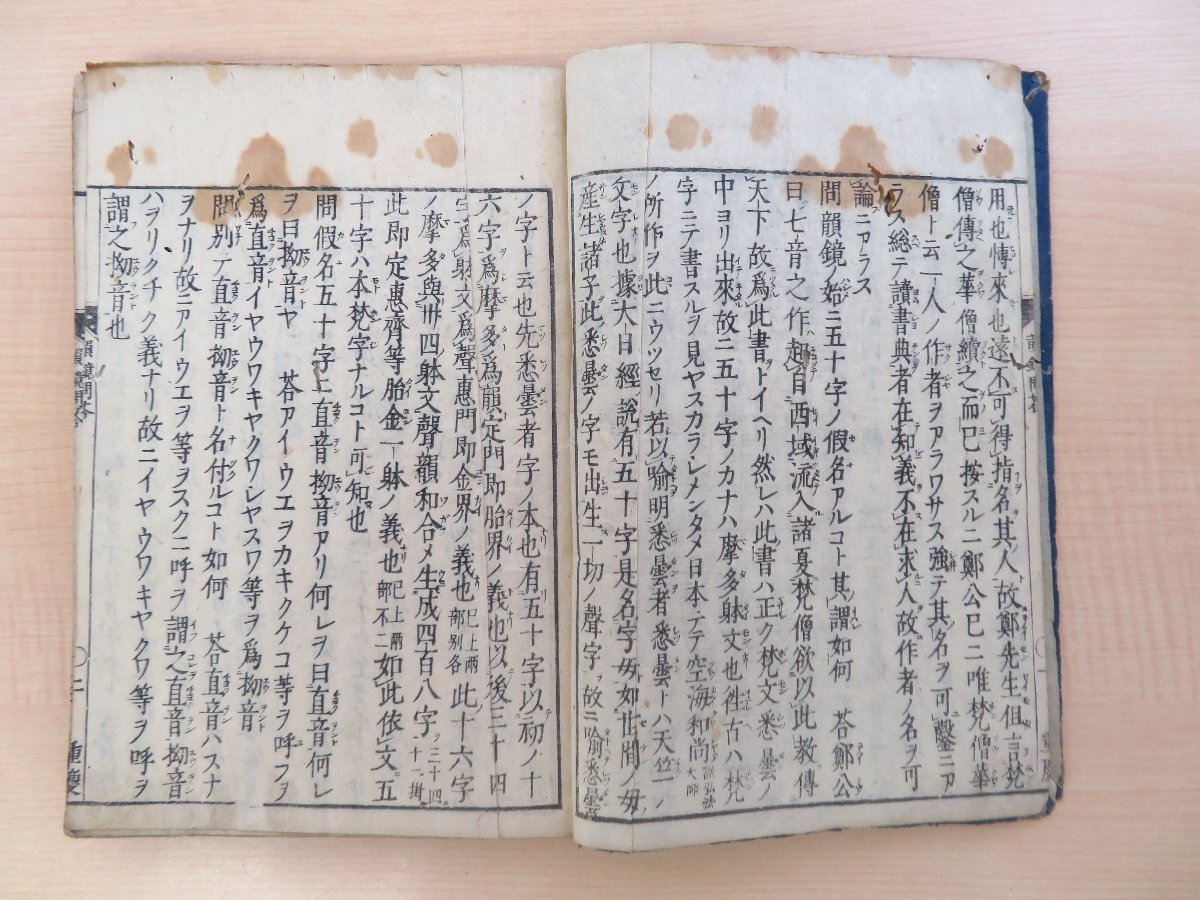 用也慱來也遠不可得指名其人故鄭先生但言梵
僧傳之華僧續之而已按スルニ鄭公已ニ唯梵僧華
僧ト云一人ノ作者ヲアラワサス強テ其名ヲ可鑿ニア
ラス総テ讀書典者在知義不在求人故作者ノ名ヲ可
論ニアラス
問韻鏡ノ始ニ五十字ノ假名アルコト其謂如何 荅鄭公
曰七音之作起自西域流入諸夏梵僧欲以此教傳
天下故爲此書トイヘリ然レハ此書ハ正ク梵文悉曇ノ
中ヨリ出來故ニ五十字ノカナハ摩多躰文也徃古ハ梵
字ニテ書スルヲ見ヤスカラシメンタメ日本ニテ空海和尚謚弘法大師
ノ所作ヲ此ニウツセリ若以喻明悉曇者悉曇トハ天竺ノ
文字也據大日經說有五十字是名字母如世間ノ母
産生諸子此悉曇ノ字モ出生一切ノ聲字故ニ喻悉曇
ノ字ト云也先悉曇者字ノ本也有五十字以初ノ十
六字爲摩多爲韻定門即胎界ノ義也以後三十四
字爲躰文爲聲惠門即金界ノ義也已上兩部別各此十六字
ノ摩多與卅四躰文聲韻和合メ生成四百八字三十四十二揖
此即定惠齊等胎金一躰ノ義也已上兩部不二如此依文五
十字ハ本梵字ナルコト可知也
問假名五十字ニ直音拗音アリ何レヲ曰直音何レ
ヲ曰拗音ヤ 荅アイウエヲカキクケコ等ヲ呼フヲ
爲直音イヤウワキヤクワシヤスワ等ヲ爲拗音
問別テ直音拗音ト名付ルコト如何 荅直音ハスナ
ヲナリ故ニアイウエヲ等ヲスクニ呼ヲ謂之直音拗音
ハヲリクチク義ナリ故ニイヤウワキヤクワ等ヲ呼ヲ
謂之拗音也
韻鏡問荅
〇二
重慶